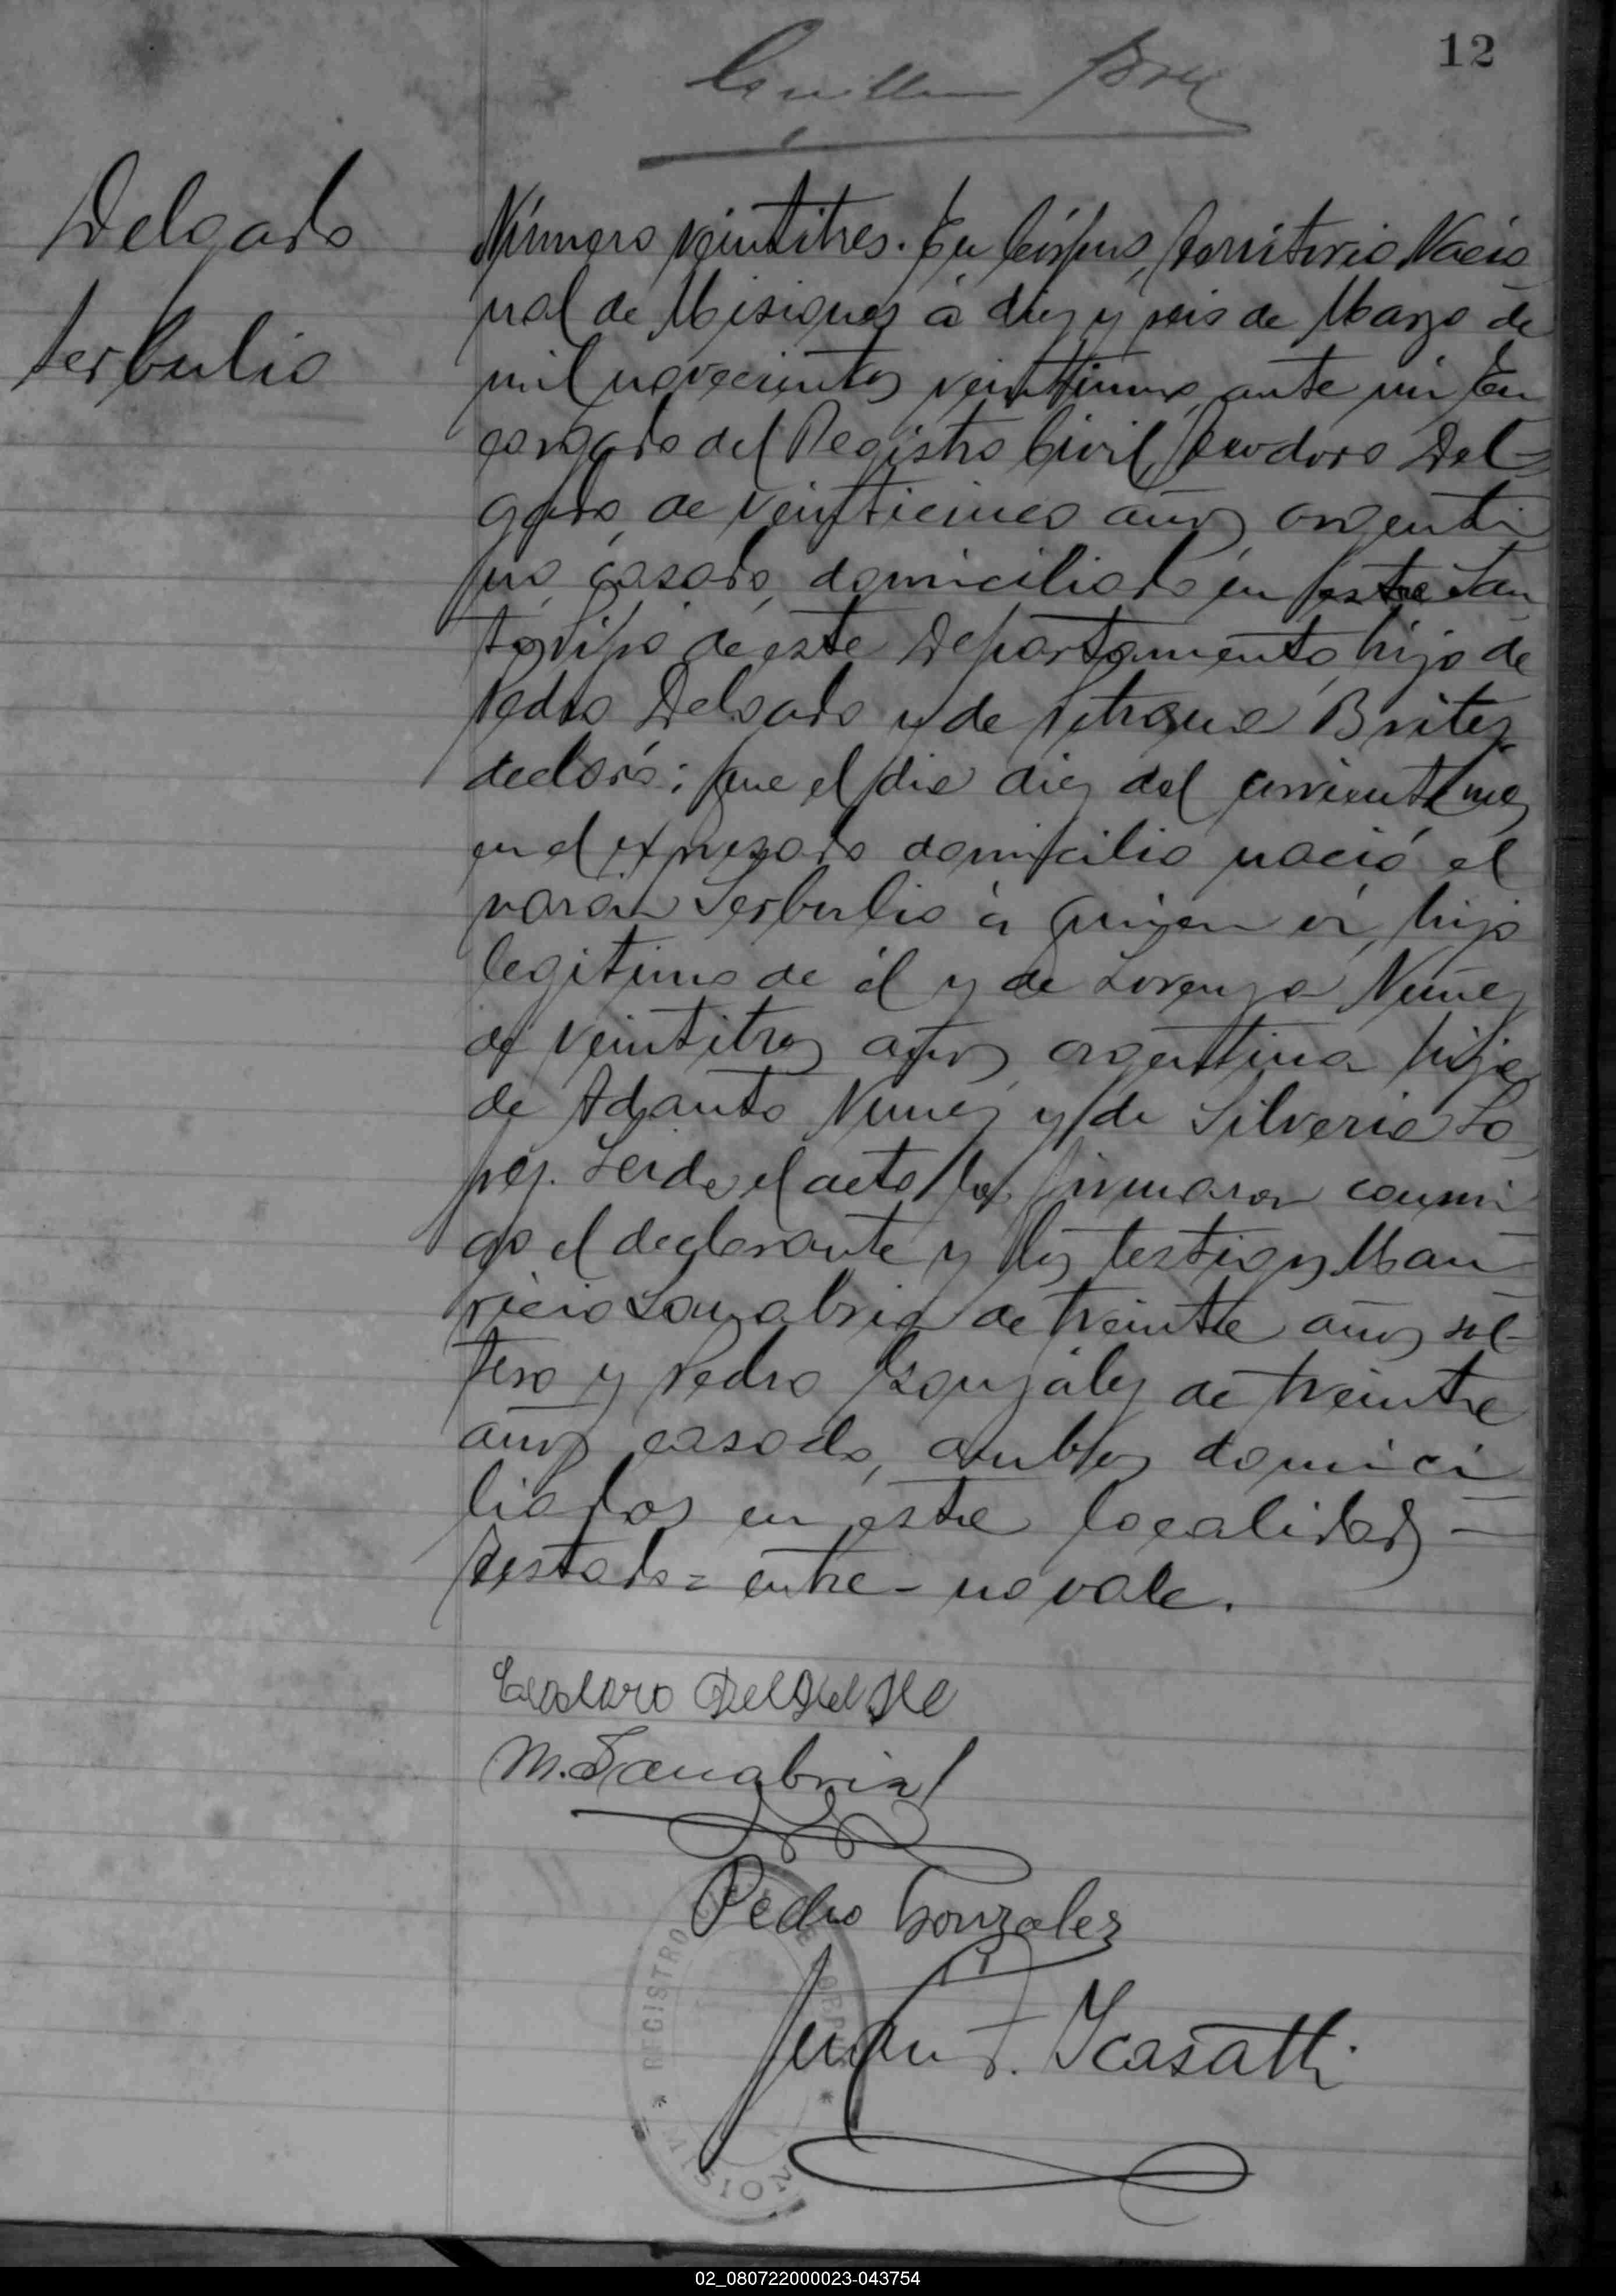 12
Delgado
Serbulio
Número veintitres. En Córpus, territorio Nacio
nal de Misiones á diez y seis de Marzo de
mil novecientos veintiuno, ante mi En
cargado del Registro Civil, Teodoro Del-
gado, de veinticinco años, argenti
no, casado, domiciliado en este San
de este Departamento, hijo de
Pedro Delgado y de Petrona Britez
declaró: que el dia diez del corriente mes
en el expresado domicilio nació el
varón Serbulio á quien vi, hijo
legitimo de él y de Lorenza Nuñez
de veintitres años, argentina hija
de Adanto Nuñez y de Silveria Lo
pez. Leida el acta la firmaron conmi
go el declarante y los testigos Mau
ricio Sanabria de treinta años sol-
tero y Pedro González de treinta
años casado, ambos domici
liados en esta localidad —
Testado = entre - no vale.
Teodoro Delgado
M. Sanabria
Pedro Gonzalez
Juan F. Icasatti
REGISTRO CORPUS
MISIONES
02_080722000023-043754